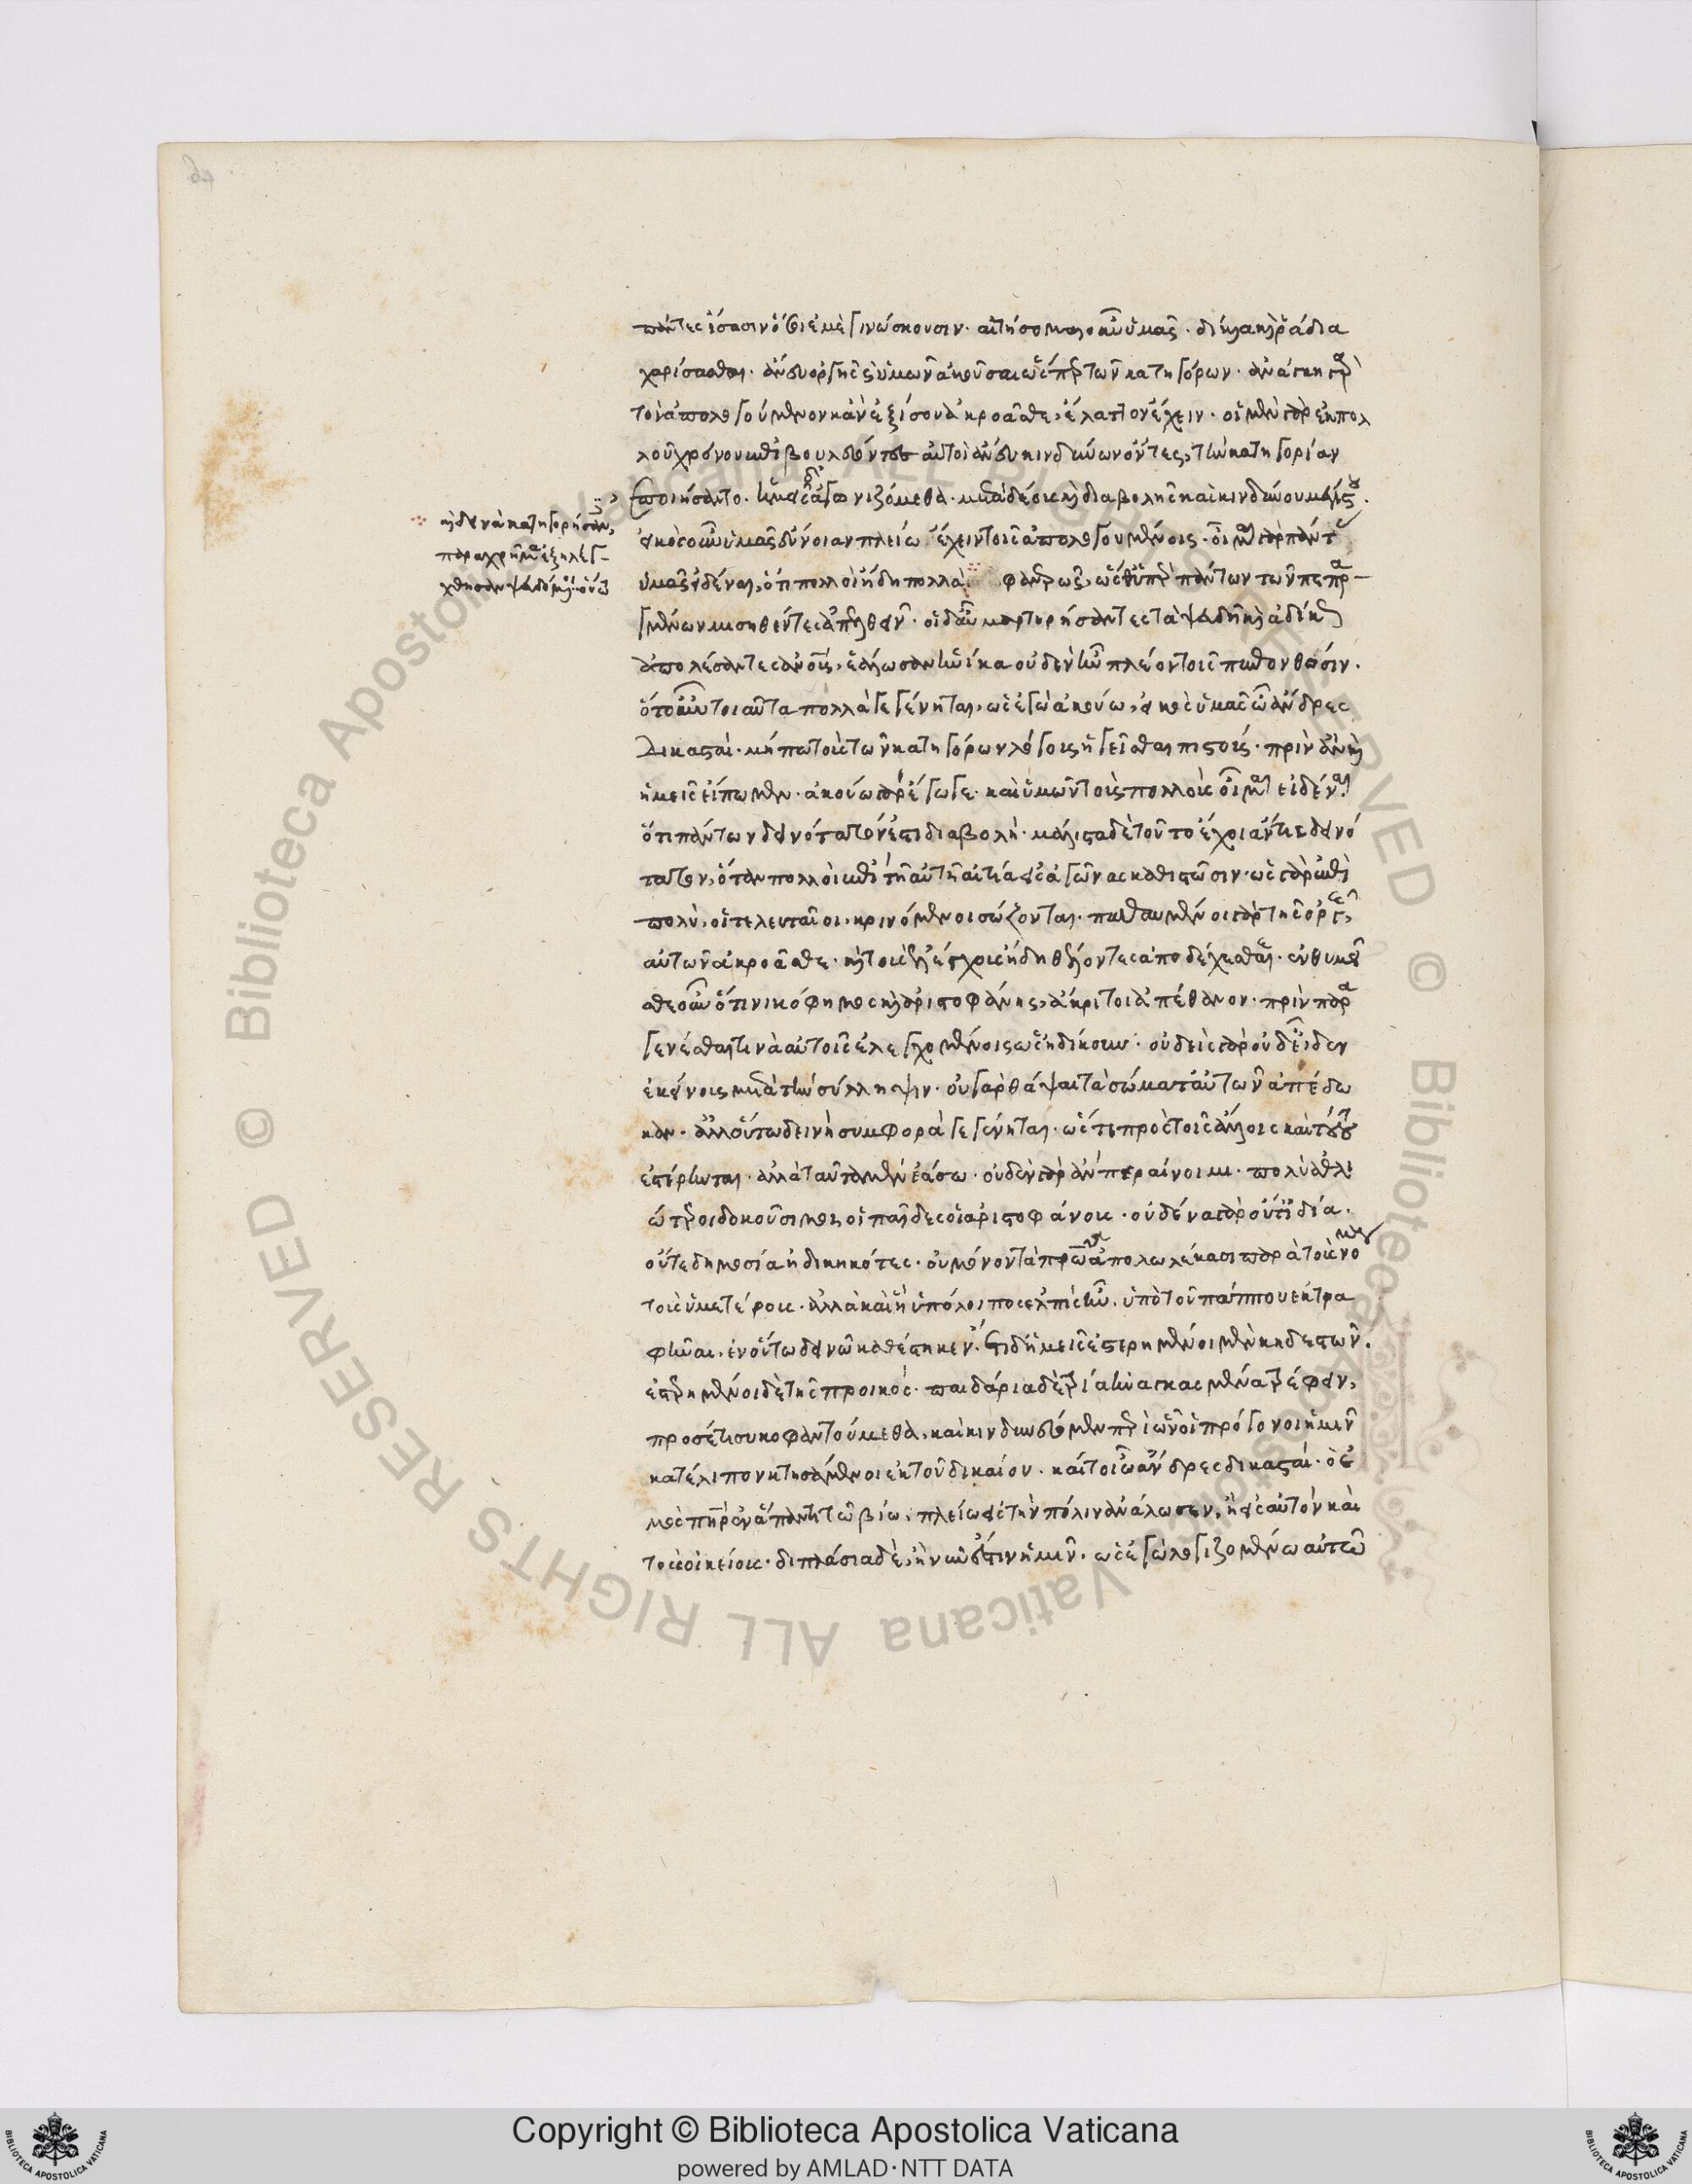 πάντες ἴσασιν ὅσοι ἐμὲ γινώσκουσιν. αἰτήσομαι οὖν ὑμᾶς. δίκαια καὶ ῥάδια
χαρίσασθαι. ἄνευ ὀργῆς ὑμῶν ἀκοῦσαι ὥσπερ τῶν κατηγόρων. ἀνάγκη γὰρ
τὸν ἀπολογούμενον κἂν ἐξίσου ἀκροᾶσθε, ἔλαττον ἔχειν. οἱ μὲν γὰρ ἐκ πολ
λοῦ χρόνου ἐπιβουλεύοντες αὐτοὶ ἄνευ κινδύνων ὄντες, τὴν κατηγορίαν
ἐποιήσαντο. ἡμεῖς δὲ ἀγωνιζόμεθα. μετὰ δέους καὶ διαβολῆς καὶ κινδύνου μεγίστου.
εἰκὸς οὖν ὑμᾶς εὔνοιαν πλείω ἔχειν τοῖς ἀπολογουμένοις. οἶμαι γὰρ πάντας
ὑμᾶς εἰδέναι, ὅτι πολλοὶ ἤδη πολλὰ φανερῶς, ὥσθ' ὑπὲρ πάντων τῶν πεπρα-
καὶ δεινὰ κατηγορήσαντες,
παραχρῆμα ἐξηλέγ-
χθησαν ψευδόμενοι οὕτω
γμένων μισηθέντες ἀπελθεῖν. οἱ δ' αὖ μαρτυρήσαντες τὰ ψευδῆ καὶ ἀδίκως
ἀπολέσαντες ἀνθρώπους, ἑάλωσαν ἡνίκα οὐδὲν ἦν πλέον τοῖς πεπονθόσιν.
ὅτ' οὖν τοιαῦτα πολλὰ γεγένηται, ὡς ἐγὼ ἀκούω, εἰκὸς ὑμᾶς ὦ ἄνδρες
Δικασταί. μήπω τοὺς τῶν κατηγόρων λόγους ἡγεῖσθαι πιστούς. πρὶν ἂν καὶ
ἡμεῖς εἴπωμεν. ἀκούω γὰρ ἔγωγε. καὶ ὑμῶν τοὺς πολλοὺς οἶμαι εἰδέναι
ὅτι πάντων δεινότατόν ἐστι διαβολή. μάλιστα δὲ τοῦτο ἔχοι ἄν τις δεινό
τατον, ὅταν πολλοὶ ἐπὶ τῇ αὐτῇ αἰτίᾳ εἰς ἀγῶνας καθιστῶσιν. ὡς γὰρ ἐπὶ
πολύ, οἱ τελευταῖοι, κρινόμενοι σώζονται. πεπαυμένοι γὰρ τῆς ὀργῆς,
αὐτῶν ἀκροᾶσθε. καὶ τοὺς ἐλέγχους ἤδη θέλοντες ἀποδέχεσθαι. ἐνθυμεῖ
σθε οὖν ὅτι νικόφημος καὶ ἀριστοφάνης, ἄκριτοι ἀπέθανον. πρὶν παρα
γενέσθαι τινὰ αὐτοῖς ἐλεγχομένοις ὡς ἠδίκουν. οὐδεὶς γὰρ οὐδ' εἶδεν
ἐκείνους μετὰ τὴν σύλληψιν. οὐ γὰρ θάψαι τὰ σώματ' αὐτῶν ἀπέδω
καν. ἀλλ' οὕτω δεινὴ συμφορὰ γεγένηται. ὥστε πρὸς τοῖς ἄλλοις καὶ τούτου
ἐστέρηνται. ἀλλὰ ταῦτα μὲν ἐάσω. οὐδὲν γὰρ ἂν περαίνοιμι. πολὺ ἀθλι
ώτεροι δοκοῦσί μοι οἱ παῖδες οἱ ἀριστοφάνους. οὐδένα γὰρ οὔτ' ἰδίᾳ.
οὔτε δημοσίᾳ ἠδικηκότες. οὐ μόνον τὰ πατρῷα ἀπολωλέκασι παρὰ τοὺς νόμους
τοὺς ὑμετέρους. ἀλλὰ καὶ ἣ ὑπόλοιπος ἐλπὶς ἦν. ὑπὸ τοῦ πάππου ἐκτρα
φῆναι. ἐν οὕτω δεινῷ καθέστηκεν. ἔτι δ' ἡμεῖς ἐστερημένοι μὲν κηδεστῶν.
ἐστερημένοι δὲ τῆς προικός. παιδάρια δὲ τρία ἠναγκασμένοι τρέφειν,
προσέτι συκοφαντούμεθα, καὶ κινδυνεύομεν περὶ ὧν οἱ πρόγονοι ἡμῖν
κατέλιπον κτησάμενοι ἐκ τοῦ δικαίου. καίτοι ὦ ἄνδρες δικασταί. ὁ ἐ
μὸς πατὴρ ἐν ἅπαντι τῷ βίῳ, πλείω εἰς τὴν πόλιν ἀνάλωσεν, ἢ εἰς αὑτὸν καὶ
τοὺς οἰκείους. διπλάσια δὲ, ἢ νῦν ἔστιν ἡμῖν. ὡς ἐγὼ λογιζομένῳ αὐτῷ
Copyright © Biblioteca Apostolica Vaticana
powered by AMLAD·NTT DATA